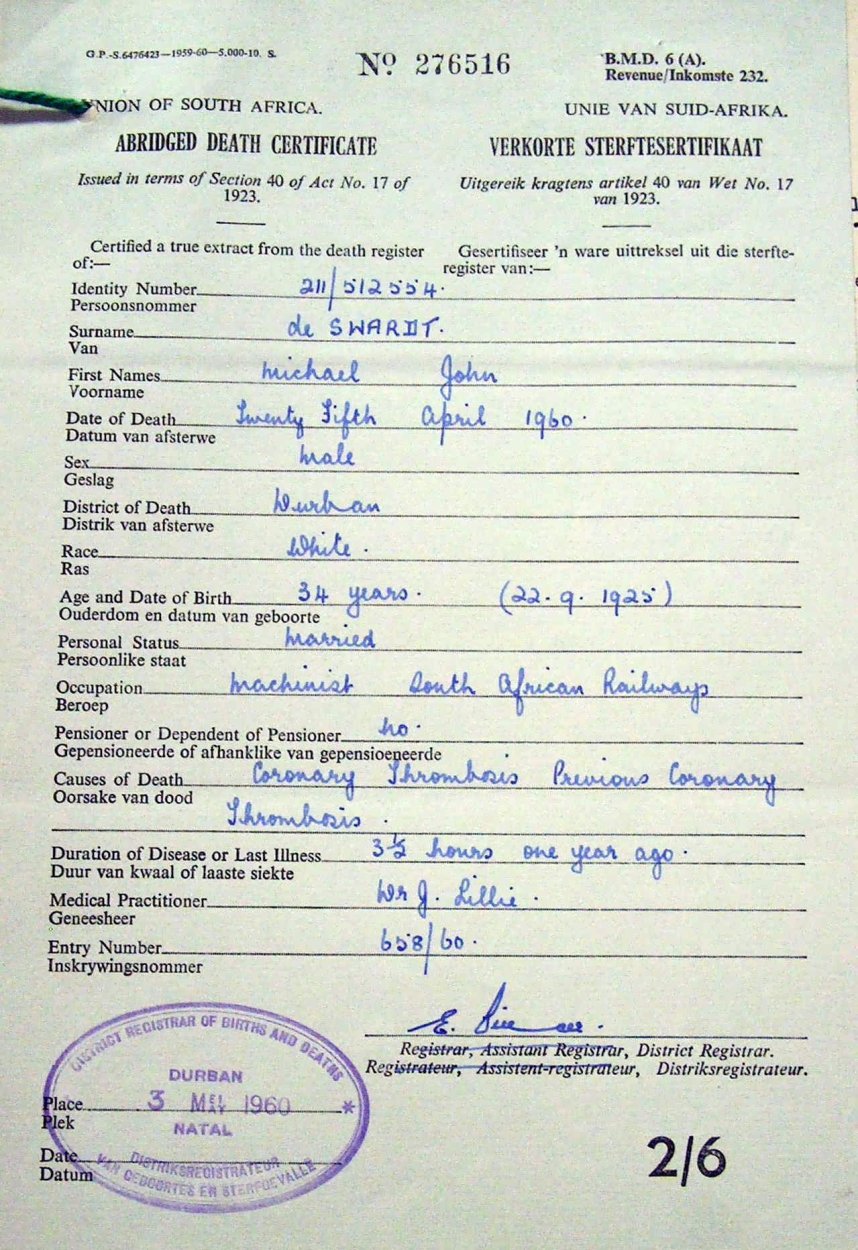 G.P.-S.6476423—1959-60—5,000-10. S.
Nº 276516
B.M.D. 6 (A).
Revenue/Inkomste 232.
UNION OF SOUTH AFRICA.
UNIE VAN SUID-AFRIKA.
ABRIDGED DEATH CERTIFICATE
VERKORTE STERFTESERTIFIKAAT
Issued in terms of Section 40 of Act No. 17 of
1923.
Uitgereik kragtens artikel 40 van Wet No. 17
van 1923.
Certified a true extract from the death register
of:—
Gesertifiseer 'n ware uittreksel uit die sterfte-
register van:—
Identity Number 211/512554.
Persoonsnommer
Surname de SWARDT.
Van
First Names Michael John
Voorname
Date of Death Twenty Fifth April 1960.
Datum van afsterwe
Sex Male
Geslag
District of Death Durban
Distrik van afsterwe
Race White.
Ras
Age and Date of Birth 34 years. (22.9.1925)
Ouderdom en datum van geboorte
Personal Status Married
Persoonlike staat
Occupation Machinist South African Railways
Beroep
Pensioner or Dependent of Pensioner No.
Gepensioneerde of afhanklike van gepensioeneerde
Causes of Death Coronary Thrombosis Previous Coronary
Oorsake van dood
Thrombosis.
Duration of Disease or Last Illness 3½ hours one year ago.
Duur van kwaal of laaste siekte
Medical Practitioner Dr J. Lillie.
Geneesheer
Entry Number 658/60.
Inskrywingsnommer
E.
Registrar, Assistant Registrar, District Registrar.
Registrateur, Assistent-registrateur, Distriksregistrateur.
DISTRICT REGISTRAR OF BIRTHS AND DEATHS
DURBAN
Place 3 MEI MAY 1960 *
Plek
NATAL
Date
Datum
DISTRIKSREGISTRATEUR
VAN GEBOORTES EN STERFGEVALLE
2/6